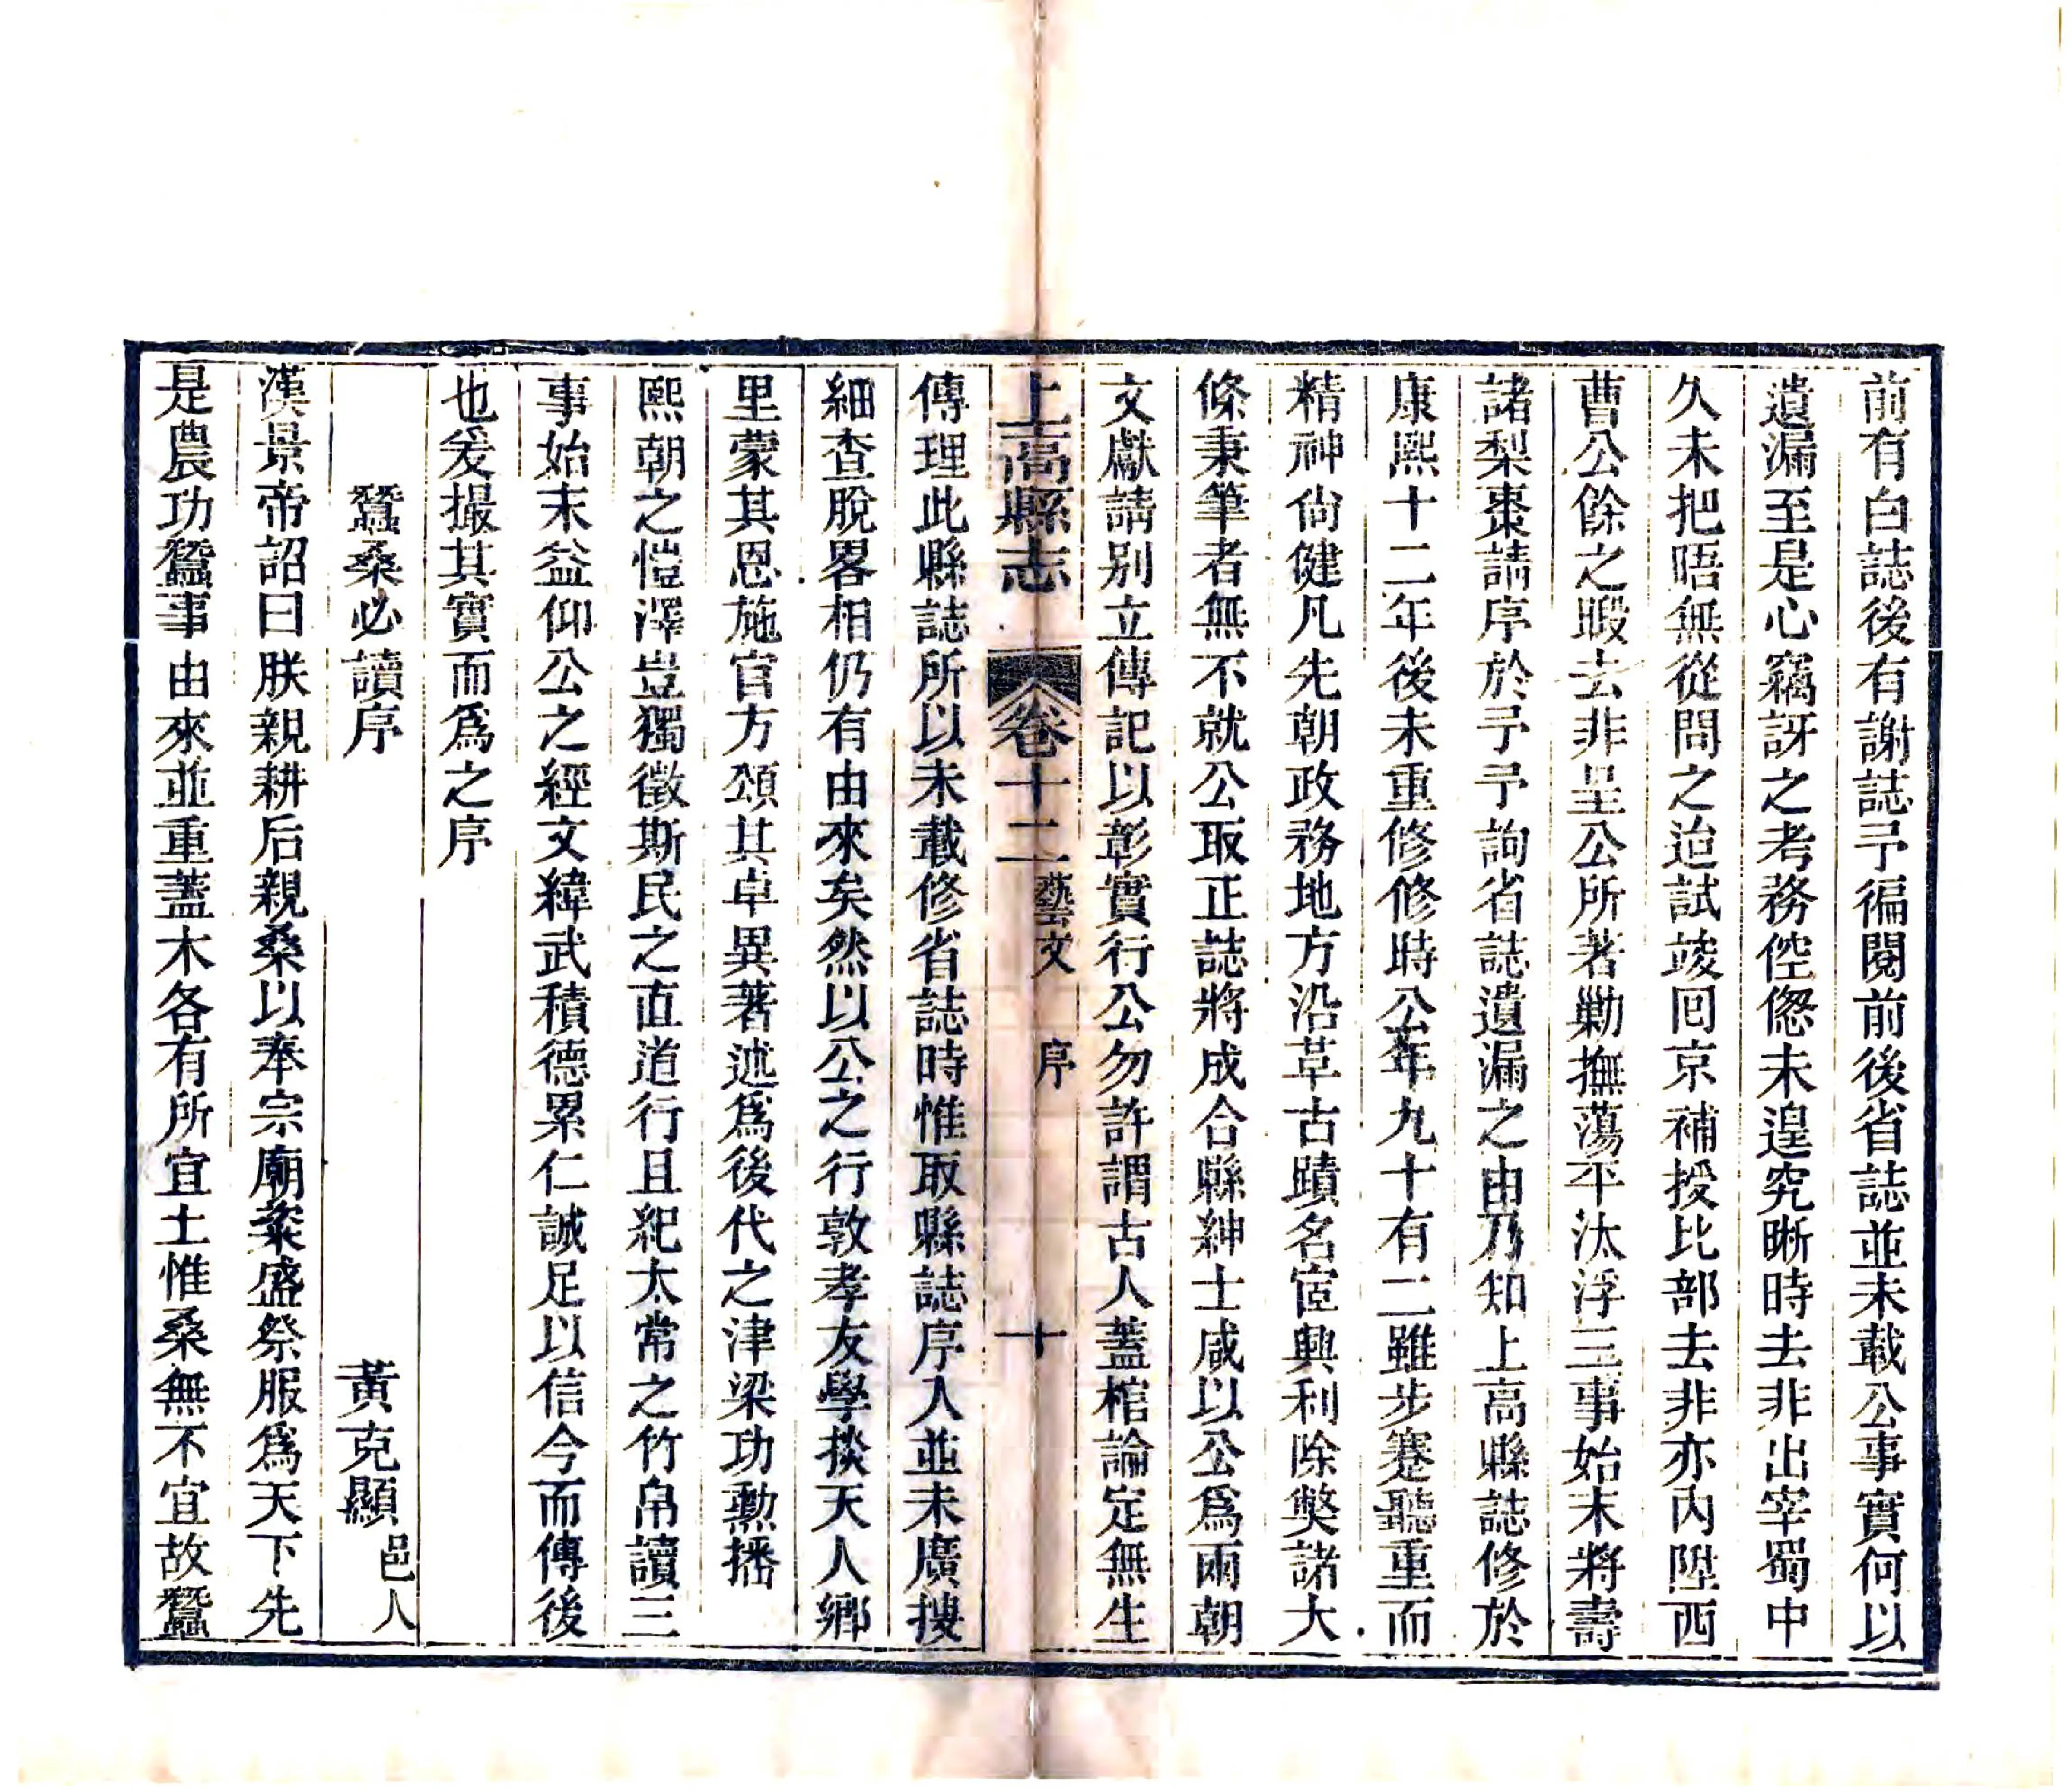 前有白誌後有謝誌予徧閱前後省誌並未載公事實何以
遺漏至是心竊訝之考務倥偬未遑究晰時去非出宰蜀中
久未把晤無從問之迨試竣回京補授比部去非亦內陞西
曹公餘之暇去非呈公所著勦撫蕩平汰浮三事始末將壽
諸梨棗請序於予予詢省誌遺漏之由乃知上高縣誌修於
康熙十二年後未重修修時公年九十有二雖步蹇聽重而
精神尙健凡先朝政務地方沿革古蹟名宦興利除獘諸大
條秉筆者無不就公取正誌將成合縣紳士咸以公爲兩朝
文獻請别立傳記以彰實行公勿許謂古人蓋棺論定無生
上高縣志 卷十二 藝文 序 十
傳理此縣誌所以未載修省誌時惟取縣誌序入並未廣搜
細查脫畧相仍有由來矣然以公之行敦孝友學掞天人鄉
里蒙其恩施官方頌其卓異著述爲後代之津梁功勲播
熙朝之愷澤豈獨徵斯民之直道行且紀太常之竹帛讀三
事始末益仰公之經文緯武積德累仁誠足以信今而傳後
也爰撮其實而爲之序
蠶桑必讀序 黃克顯 邑人
漢景帝詔曰朕親耕后親桑以奉宗廟粢盛祭服爲天下先
是農功蠶事由來並重蓋木各有所宜土惟桑無不宜故蠶